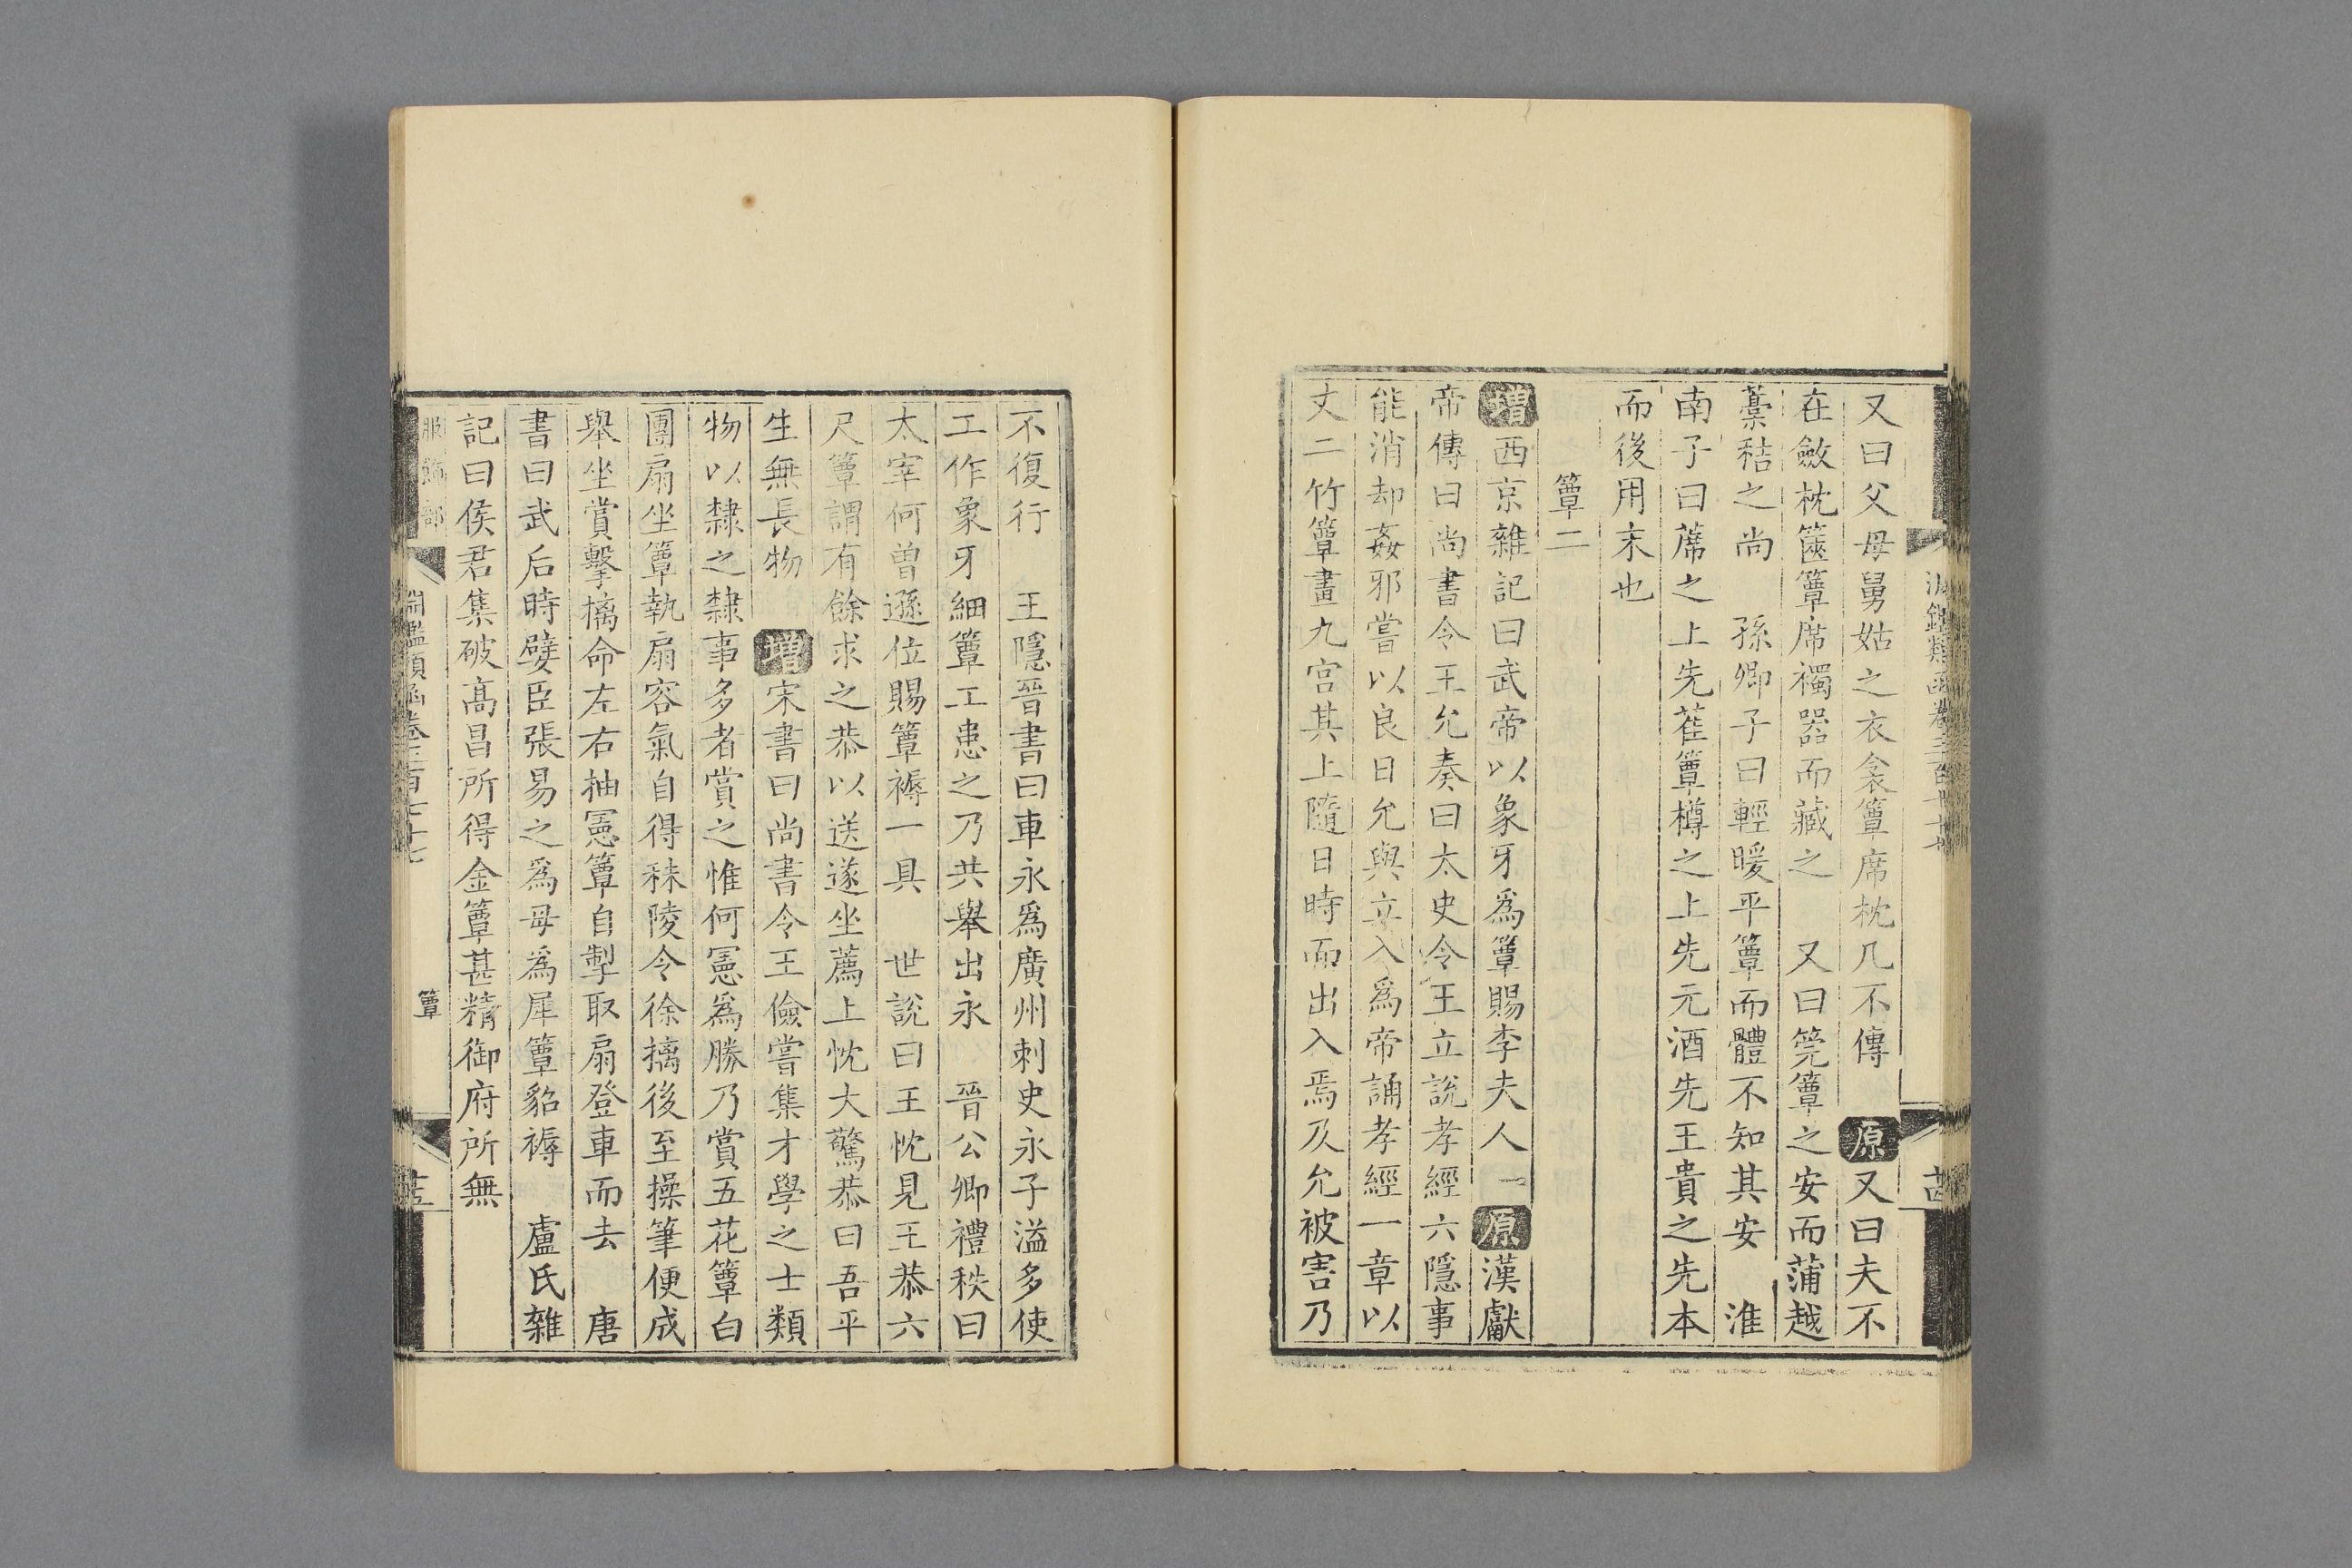 又曰父母舅姑之衣衾簟席枕几不傳 原 又曰夫不
在斂枕篋簟席襡器而藏之 又曰筦簟之安而蒲越
藁秸之尚 孫卿子曰輕暖平簟而體不知其安 淮
南子曰蓆之上先萑簟樽之上先元酒先王貴之先本
而後用末也
簟二
增 西京雜記曰武帝以象牙爲簟賜李夫人 原 漢獻
帝傳曰尚書令王允奏曰太史令王立說孝經六隱事
能消却姦邪嘗以良日允與立入爲帝誦孝經一章以
丈二竹簟畫九宮其上隨日時而出入焉及允被害乃
不復行 王隱晉書曰車永爲廣州刺史永子溢多使
工作象牙細簟工患之乃共舉出永 晉公卿禮秩曰
太宰何曾遜位賜簟褥一具 世說曰王忱見王恭六
尺簟謂有餘求之恭以送遂坐薦上忱大驚恭曰吾平
生無長物 增 宋書曰尚書令王儉嘗集才學之士類
物以隸之隸事多者賞之惟何憲爲勝乃賞五花簟白
團扇坐簟執扇容氣自得秣陵令徐摛後至操筆便成
舉坐賞擊摛命左右抽憲簟自掣取扇登車而去 唐
書曰武后時嬖臣張易之爲母爲犀簟貂褥 盧氏雜
記曰侯君集破高昌所得金簟甚精御府所無
服飾部 淵鑑類函卷三百七十七 簟